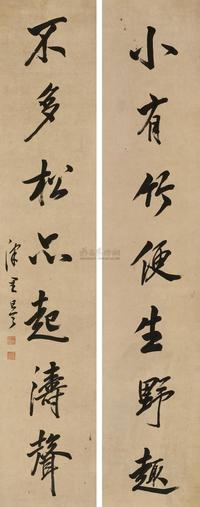 小有竹便生野趣
不多松亦起濤聲